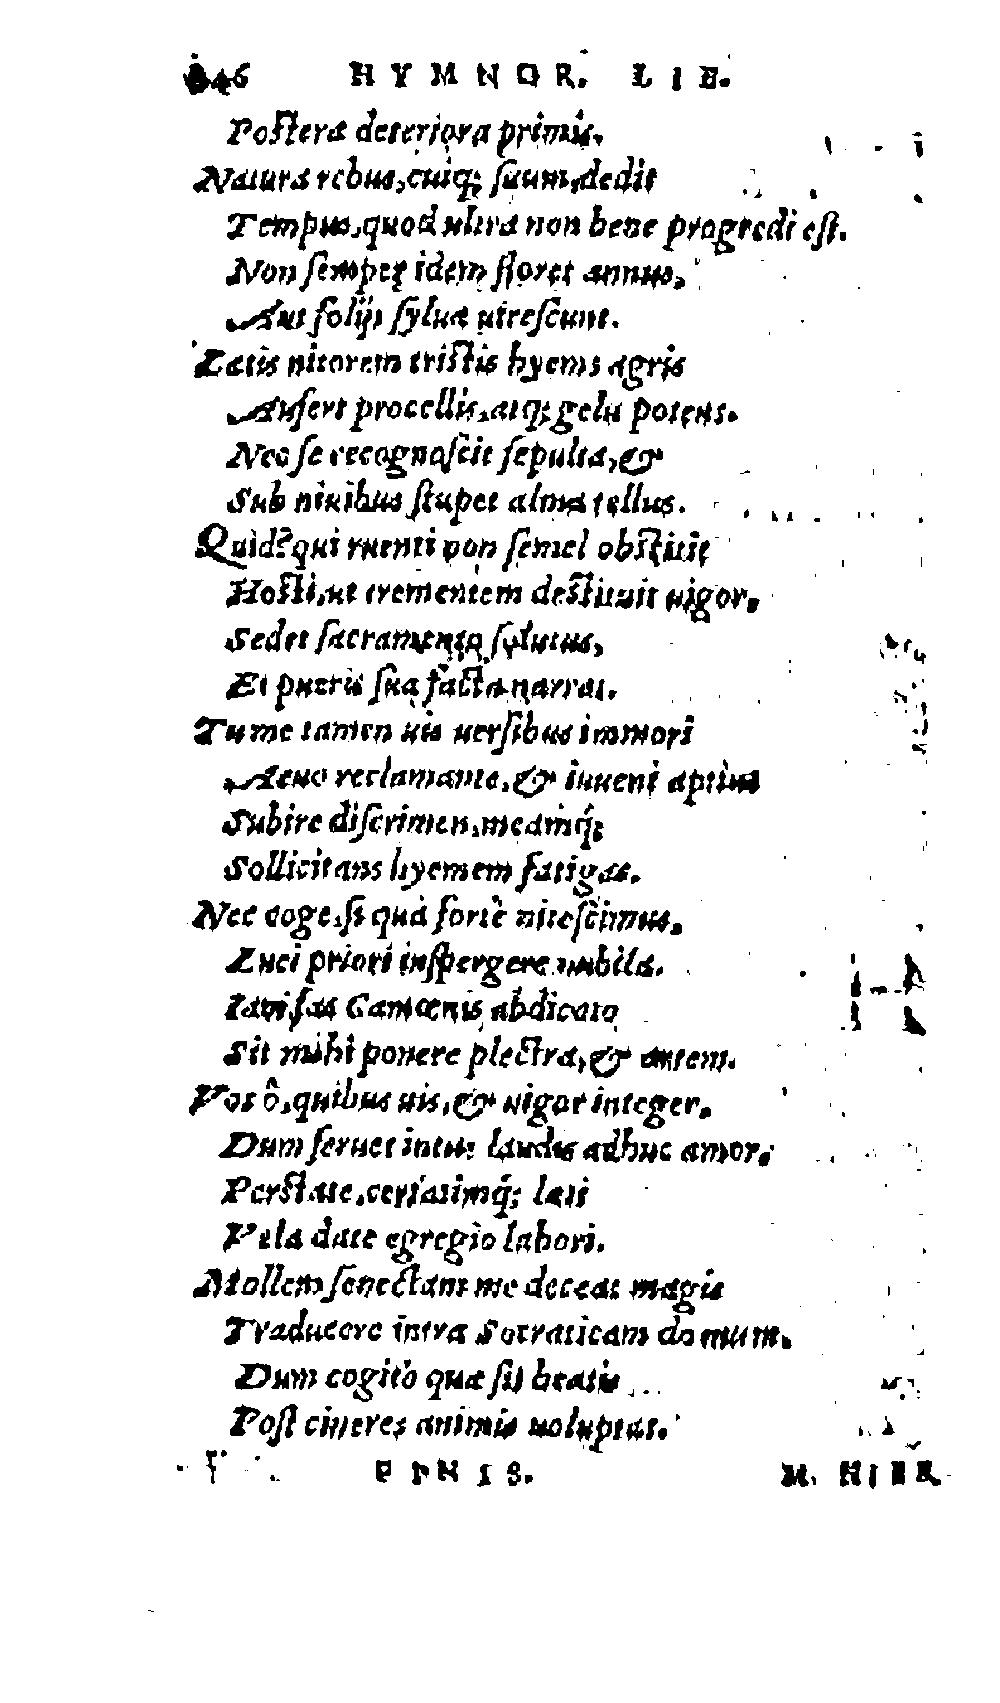 246 HYMNOR. LIB.
Posteræ deteriora primis.
Natura rebus, cuiq; suum, dedit
Tempus, quod ultra non bene progredi est.
Non semper idem floret annus,
Aut folijs syluæ uirescunt.
Lætis nitorem tristis hyems agris
Aufert procellis, atq; gelu potens.
Nec se recognoscit sepulta, &
Sub niuibus stupet alma tellus.
Quid? qui ruenti non semel obstitit
Hosti, ut trementem destituit uigor,
Sedet sacramento solutus,
Et pueris sua facta narrat.
Tu me tamen uis uersibus immori
Aeuo reclamante, & iuueni aptius
Subire discrimen, meamq́;
Sollicitans hyemem fatigas.
Nec coge, si quà fortè nitescimus,
Luci priori inspergere nubila.
Iam fas Camœnis abdicato
Sit mihi ponere plectra, & artem.
Vos ô, quibus uis, & uigor integer,
Dum feruet intus laudis adhuc amor,
Perstate, certatimq́; læti
Vela date egregio labori.
Mollem senectam me deceat magis
Traducere intra Socraticam domum,
Dum cogito quæ sit beatis
Post cineres animis uoluptas.
FINIS. M. HIER